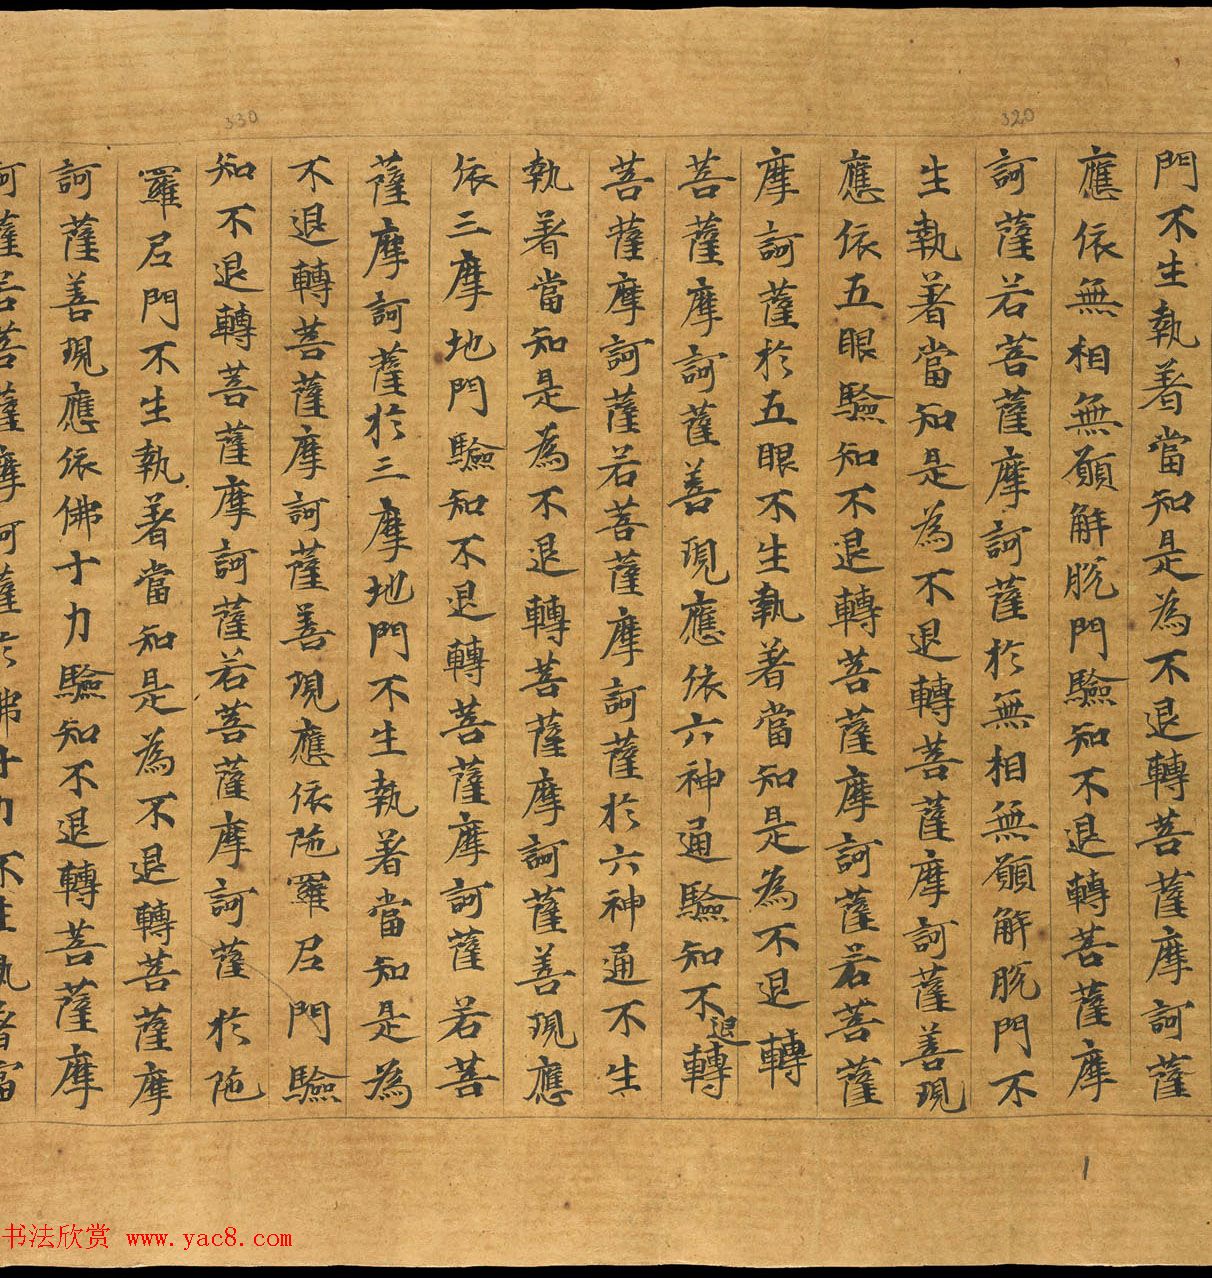 門不生執著當知是為不退轉菩薩摩訶薩
應依無相無願解脫門驗知不退轉菩薩摩
訶薩若菩薩摩訶薩於無相無願解脫門不
生執著當知是為不退轉菩薩摩訶薩善現
應依五眼驗知不退轉菩薩摩訶薩若菩薩
摩訶薩於五眼不生執著當知是為不退轉
菩薩摩訶薩善現應依六神通驗知不退轉
菩薩摩訶薩若菩薩摩訶薩於六神通不生
執著當知是為不退轉菩薩摩訶薩善現應
依三摩地門驗知不退轉菩薩摩訶薩若菩
薩摩訶薩於三摩地門不生執著當知是為
不退轉菩薩摩訶薩善現應依陁羅尼門驗
知不退轉菩薩摩訶薩若菩薩摩訶薩於陁
羅尼門不生執著當知是為不退轉菩薩摩
訶薩善現應依佛十力驗知不退轉菩薩摩
訶薩若菩薩摩訶薩於佛十力不生執著當
320
330
1
书法欣赏 www.yac8.com